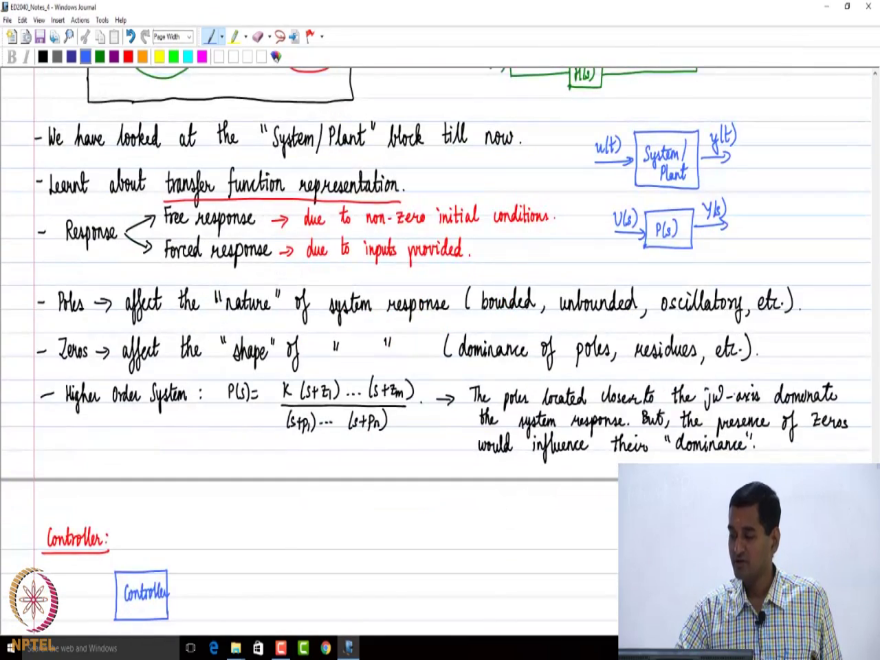 ED2040_Notes_4 - Windows Journal
File Edit View Insert Actions Tools Help
Page Width
B I
H(s)
- We have looked at the "System/Plant" block till now.
u(t) System/ Plant y(t)
- Learnt about transfer function representation.
- Response
Free response → due to non-zero initial conditions.
Forced response → due to inputs provided.
U(s) P(s) Y(s)
- Poles → affect the "nature" of system response (bounded, unbounded, oscillatory, etc.).
- Zeros → affect the "shape" of " " (dominance of poles, residues, etc.).
- Higher Order System : P(s) = K (s+z1) ... (s+zm) / (s+p1) ... (s+pn) . → The poles located closer to the jω-axis dominate
the system response. But, the presence of zeros
would influence their "dominance".
Controller:
Controller
NPTEL
the web and Windows